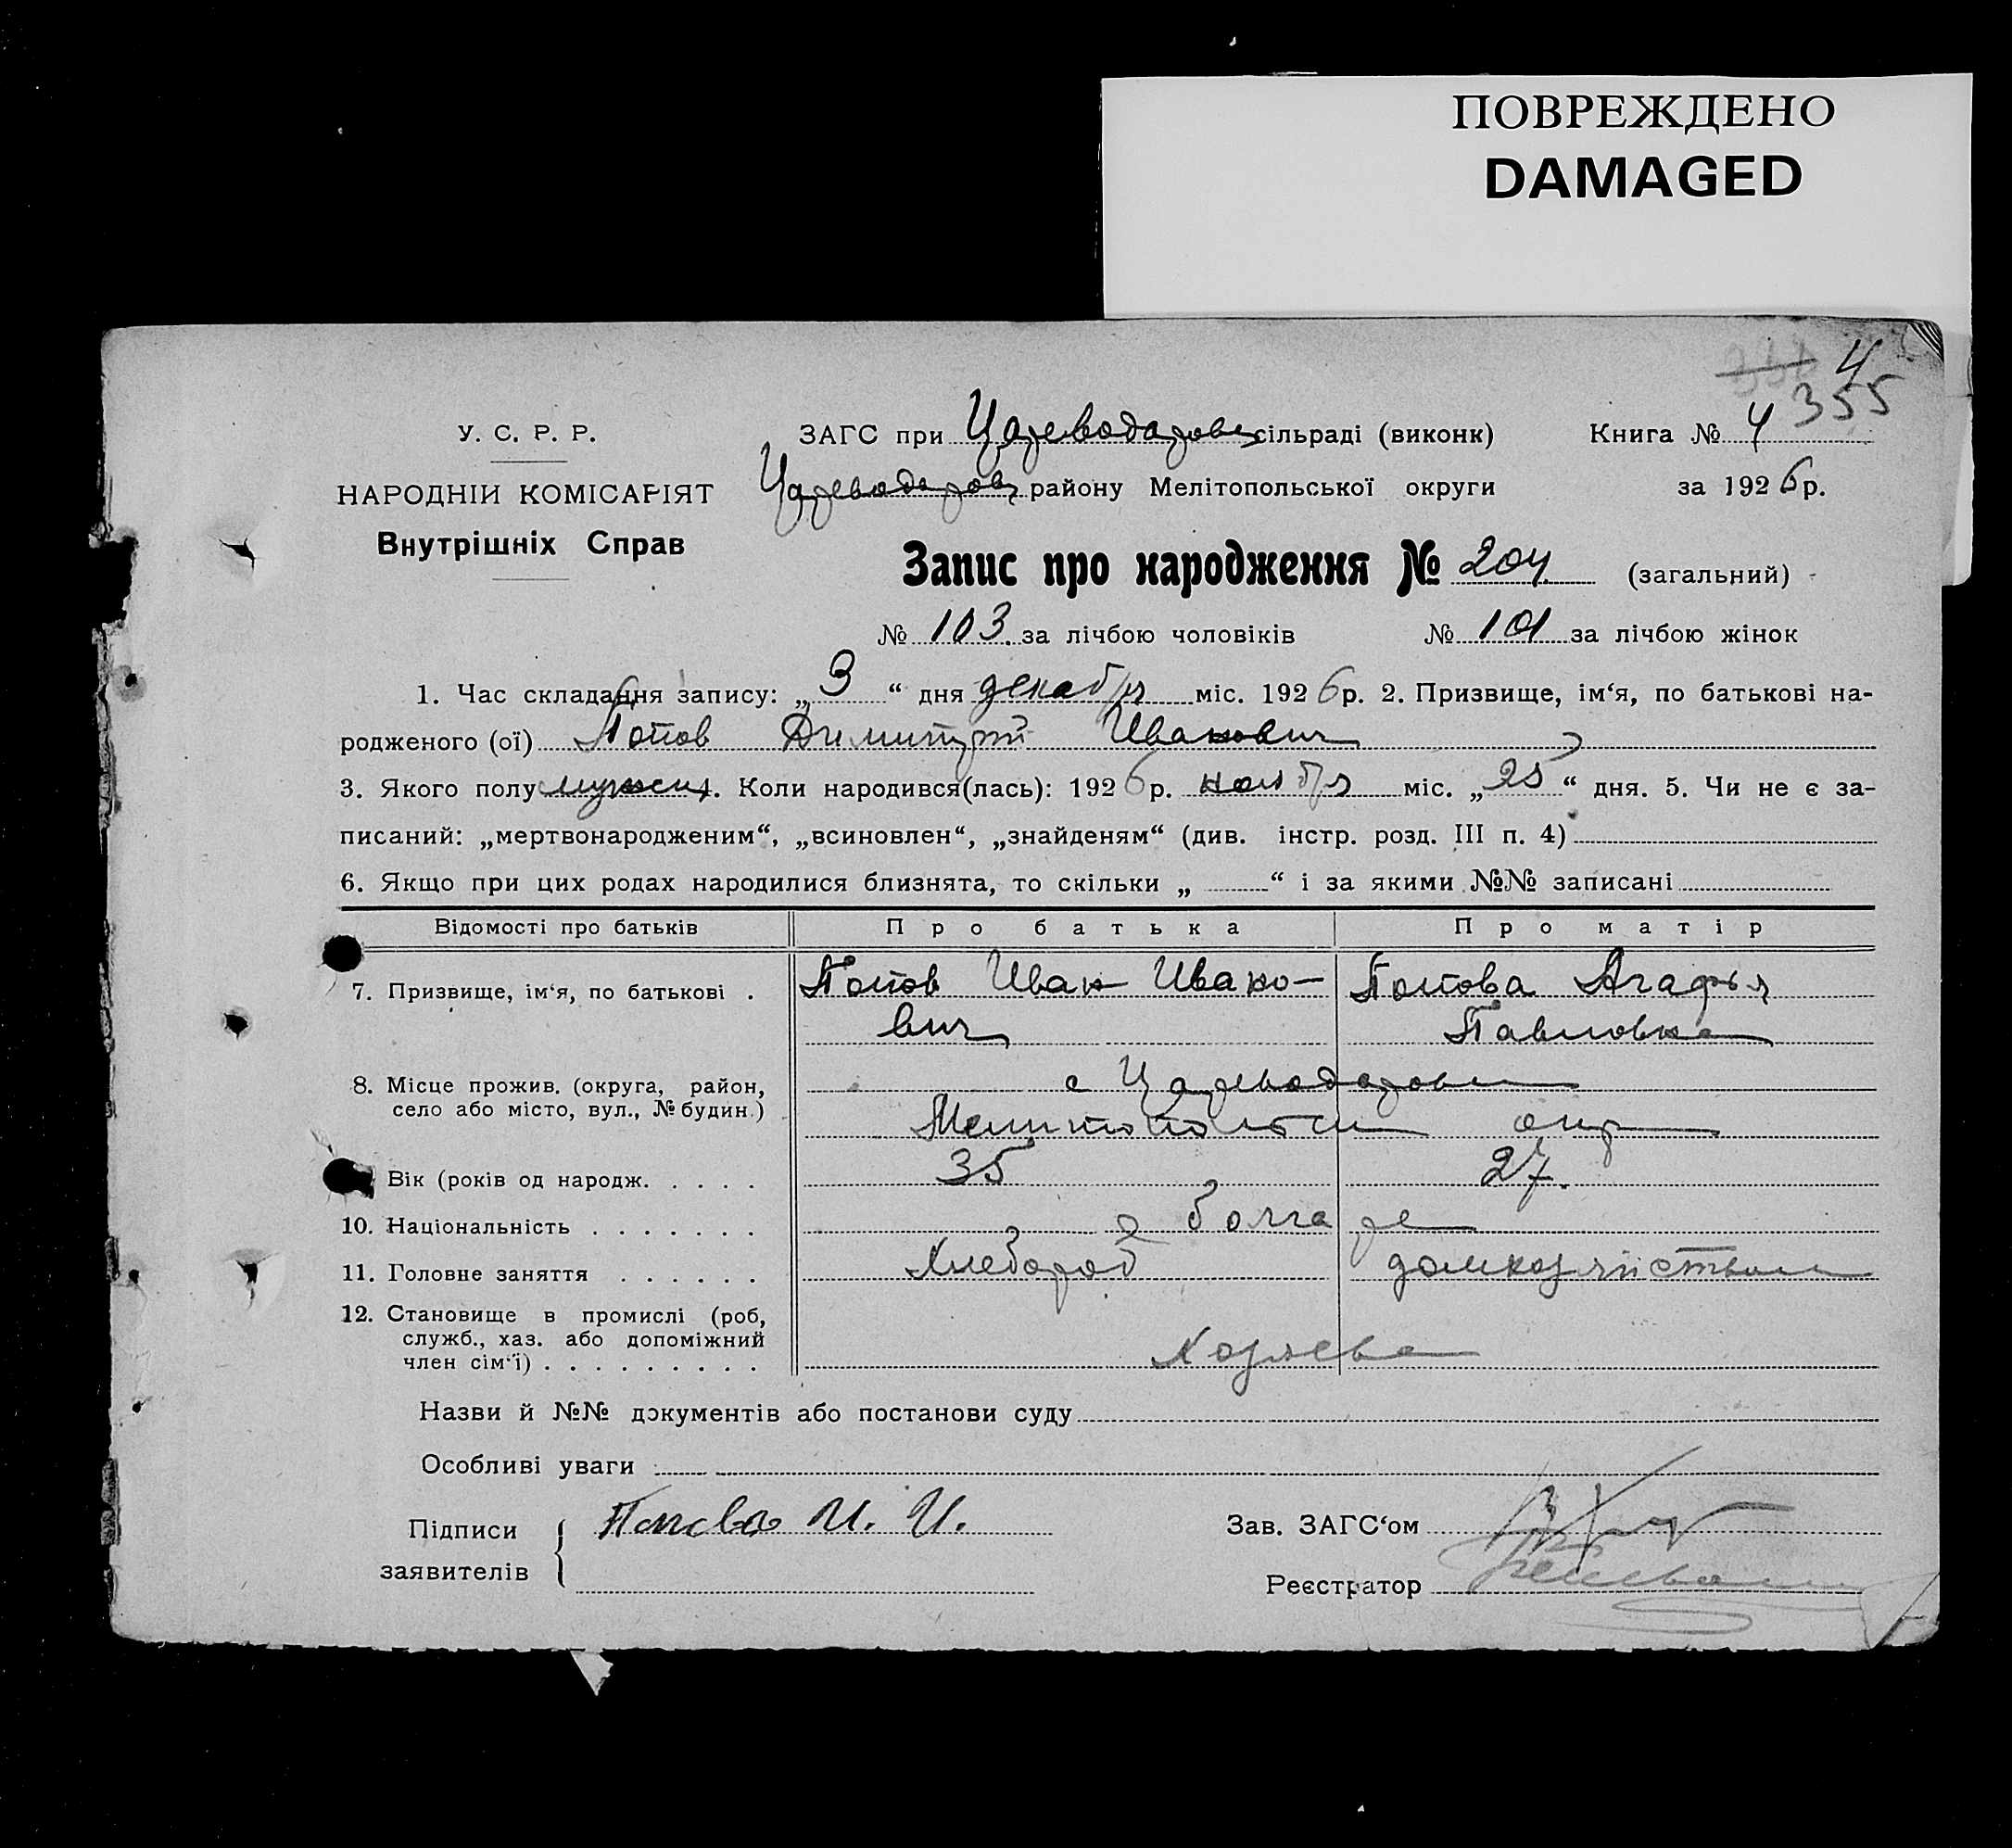 ПОВРЕЖДЕНО
DAMAGED
4
355
У. С. Р. Р.
ЗАГС при Цареводаровс сільраді (виконк)
Книга № 4
НАРОДНІЙ КОМІСАРІЯТ
Цареводаровс району Мелітопольської округи
за 1926 р.
Внутрішніх Справ
Запис про народження № 204 (загальний)
№ 103 за лічбою чоловіків № 101 за лічбою жінок
1. Час складання запису: „3“ дня декабря міс. 1926 р. 2. Призвище, ім‘я, по батькові на-
родженого (ої) Попов Димитрий Иванович
3. Якого полу мужск. Коли народився(лась): 1926 р. ноября міс. „25“ дня. 5. Чи не є за-
писаний: „мертвонародженим“, „всиновлен“, „знайденям“ (див. інстр. розд. III п. 4)
6. Якщо при цих родах народилися близнята, то скільки „ “ і за якими №№ записані
Відомості про батьків Про батька Про матір
7. Призвище, ім‘я, по батькові . Попов Иван Ивано- Попова Агафья
вич Павловна
8. Місце прожив. (округа, район, с Цареводаровк
село або місто, вул., № будин.)
Мелитопольск окр
Вік (років од народж. . . . . 35 27.
10. Національність . . . . . . . болгаре
11. Головне заняття . . . . . . Хлебороб домхозяйством
12. Становище в промислі (роб,
служб., хаз. або допоміжний
член сім‘ї) . . . . . . . . . Хозяева
Назви й №№ документів або постанови суду
Особливі уваги
Підписи Попова И. И. Зав. ЗАГС‘ом
заявителів Реєстратор